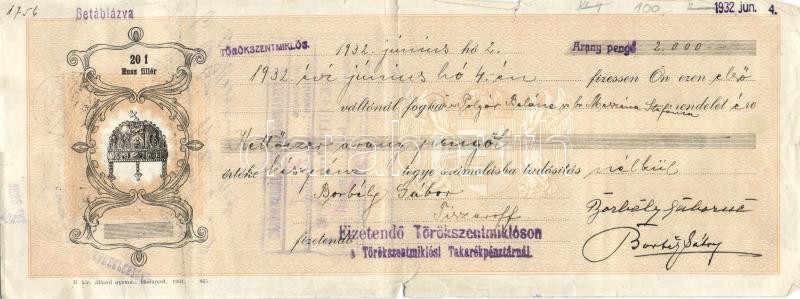 1756 Betáblázva 1932 jún. 4.
100
20 f
Husz fillér
TÖRÖKSZENTMIKLÓS, 1932. június hó 2. Arany pengő 2.000
1932 évi június hó 4.-én fizessen Ön ezen első
váltónál fogva Balázsné Mezzina Stefánia rendelet ére
Kettőezer arany pengőt
értéke készpénz s tegye számolásba tudósítás nélkül
Borbély Gábor
Tiszaroff Borbély Gáborné
fizetendő Fizetendő Törökszentmiklóson Borbély Gábor
a Törökszentmiklósi Takarékpénztárnál.
M. kir. állami nyomda, Budapest, 1931. — 845.